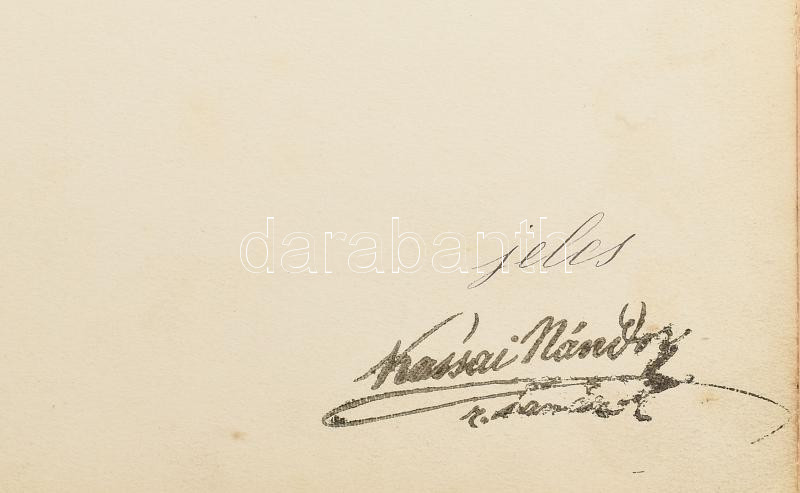 darabanth
jeles
Kassai Nándor
r. tanár